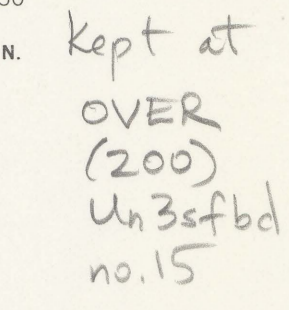 N.
Kept at
OVER
(200)
Un3sfbd
no.15